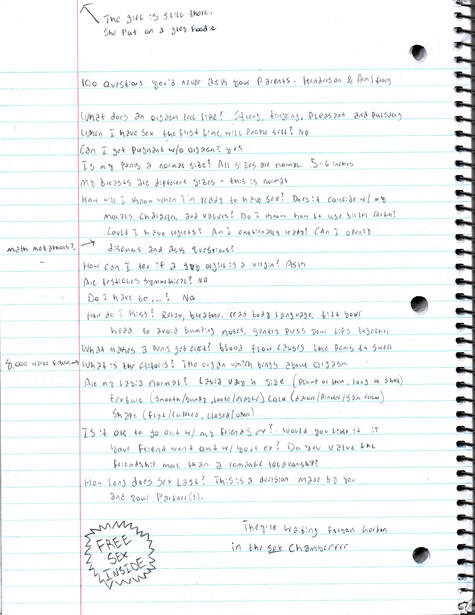 The girl is still there.
She put on a grey hoodie
100 Questions you'd never ask your Parents - Henderson & Armstrong
What does an orgasm feel like? Strong, tingling, pleasant and pulsing
When I have sex the first time, will People tell? No
Can I get Pregnant w/o orgasm? yes
Is my Penis a normal size? All sizes are normal 5-6 inches
My breasts are different sizes - this is normal
How will I know when I'm ready to have sex? Does it coincide w/ my
morals, character, and values? Do I know how to use birth control?
Could I have regrets? Am I emotionally ready? Can I openly
math metaphors? discuss and ask questions?
How can I tell if a guy or girl is a virgin? Ask
Are testicles symmetrical? No
Do I have to...? No
How do I kiss? Relax, breathe, read body language, tilt your
head to avoid bumping noses, gently press your lips together
What makes a penis get erect? Blood flow causes the Penis to swell
8,000 nerve What is the clitoris? The organ which brings about orgasm
Are my labia normal? Labia vary in size (plump or thin, long or short)
texture (smooth/bumpy, loose/) Color (darker/pinker/skin color)
Shape (flat/ruffled, closed/open)
Is it ok to go out w/ my friend's ex? Would you like it if
your friend went out w/ your ex? Do you value the
friendship more than a romantic relationship?
How long does sex last? This is a decision made by you
and your Partner(s).
FREE
SEX
INSIDE
They're waiting Gordon
in the sex Chamberrrr